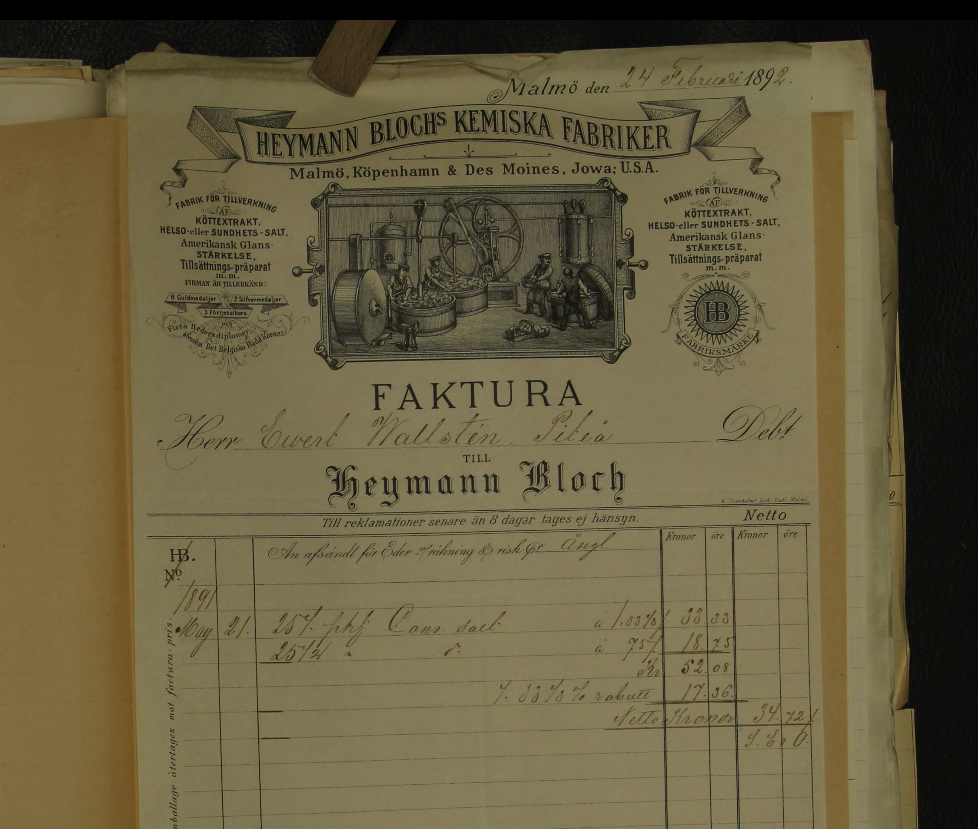 Malmö den 24 Februari 1892.
HEYMANN BLOCHS KEMISKA FABRIKER
Malmö, Köpenhamn & Des Moines, Jowa; U.S.A.
FABRIK FÖR TILLVERKNING
AF
KÖTTEXTRAKT,
HELSO-eller SUNDHETS-SALT,
Amerikansk Glans-
STÄRKELSE,
Tillsättnings-präparat
m.m.
FIRMAN ÄR TILLERKÄND:
6 Guldmedaljer 2 Silfvermedaljer
3 Förtjenstkors
och
Flera Hedersdiplomer
Det Belgiska Röda Korset
FABRIK FÖR TILLVERKNING
AF
KÖTTEXTRAKT,
HELSO-eller SUNDHETS-SALT,
Amerikansk Glans-
STÄRKELSE,
Tillsättnings-präparat
m.m.
HB
FABRIKSMÄRKE
FAKTURA
Herr Ewert Wallstén. Piteå Debt
TILL
Heymann Bloch
Till reklamationer senare än 8 dagar tages ej hänsyn.
Netto
Kronor öre Kronor öre
HB. An afsändt för Eder räkning & risk pr Ångf
No
1891
May 21. 25/1 pkj Cans. salt à 1.33⅓ 33 33
25/2 " d: à 75 18. 75
Kr 52. 08
33⅓ % rabatt 17. 36.
Netto Kronor 34. 72
S. E. & O.
emballage återtages mot factura-pris.